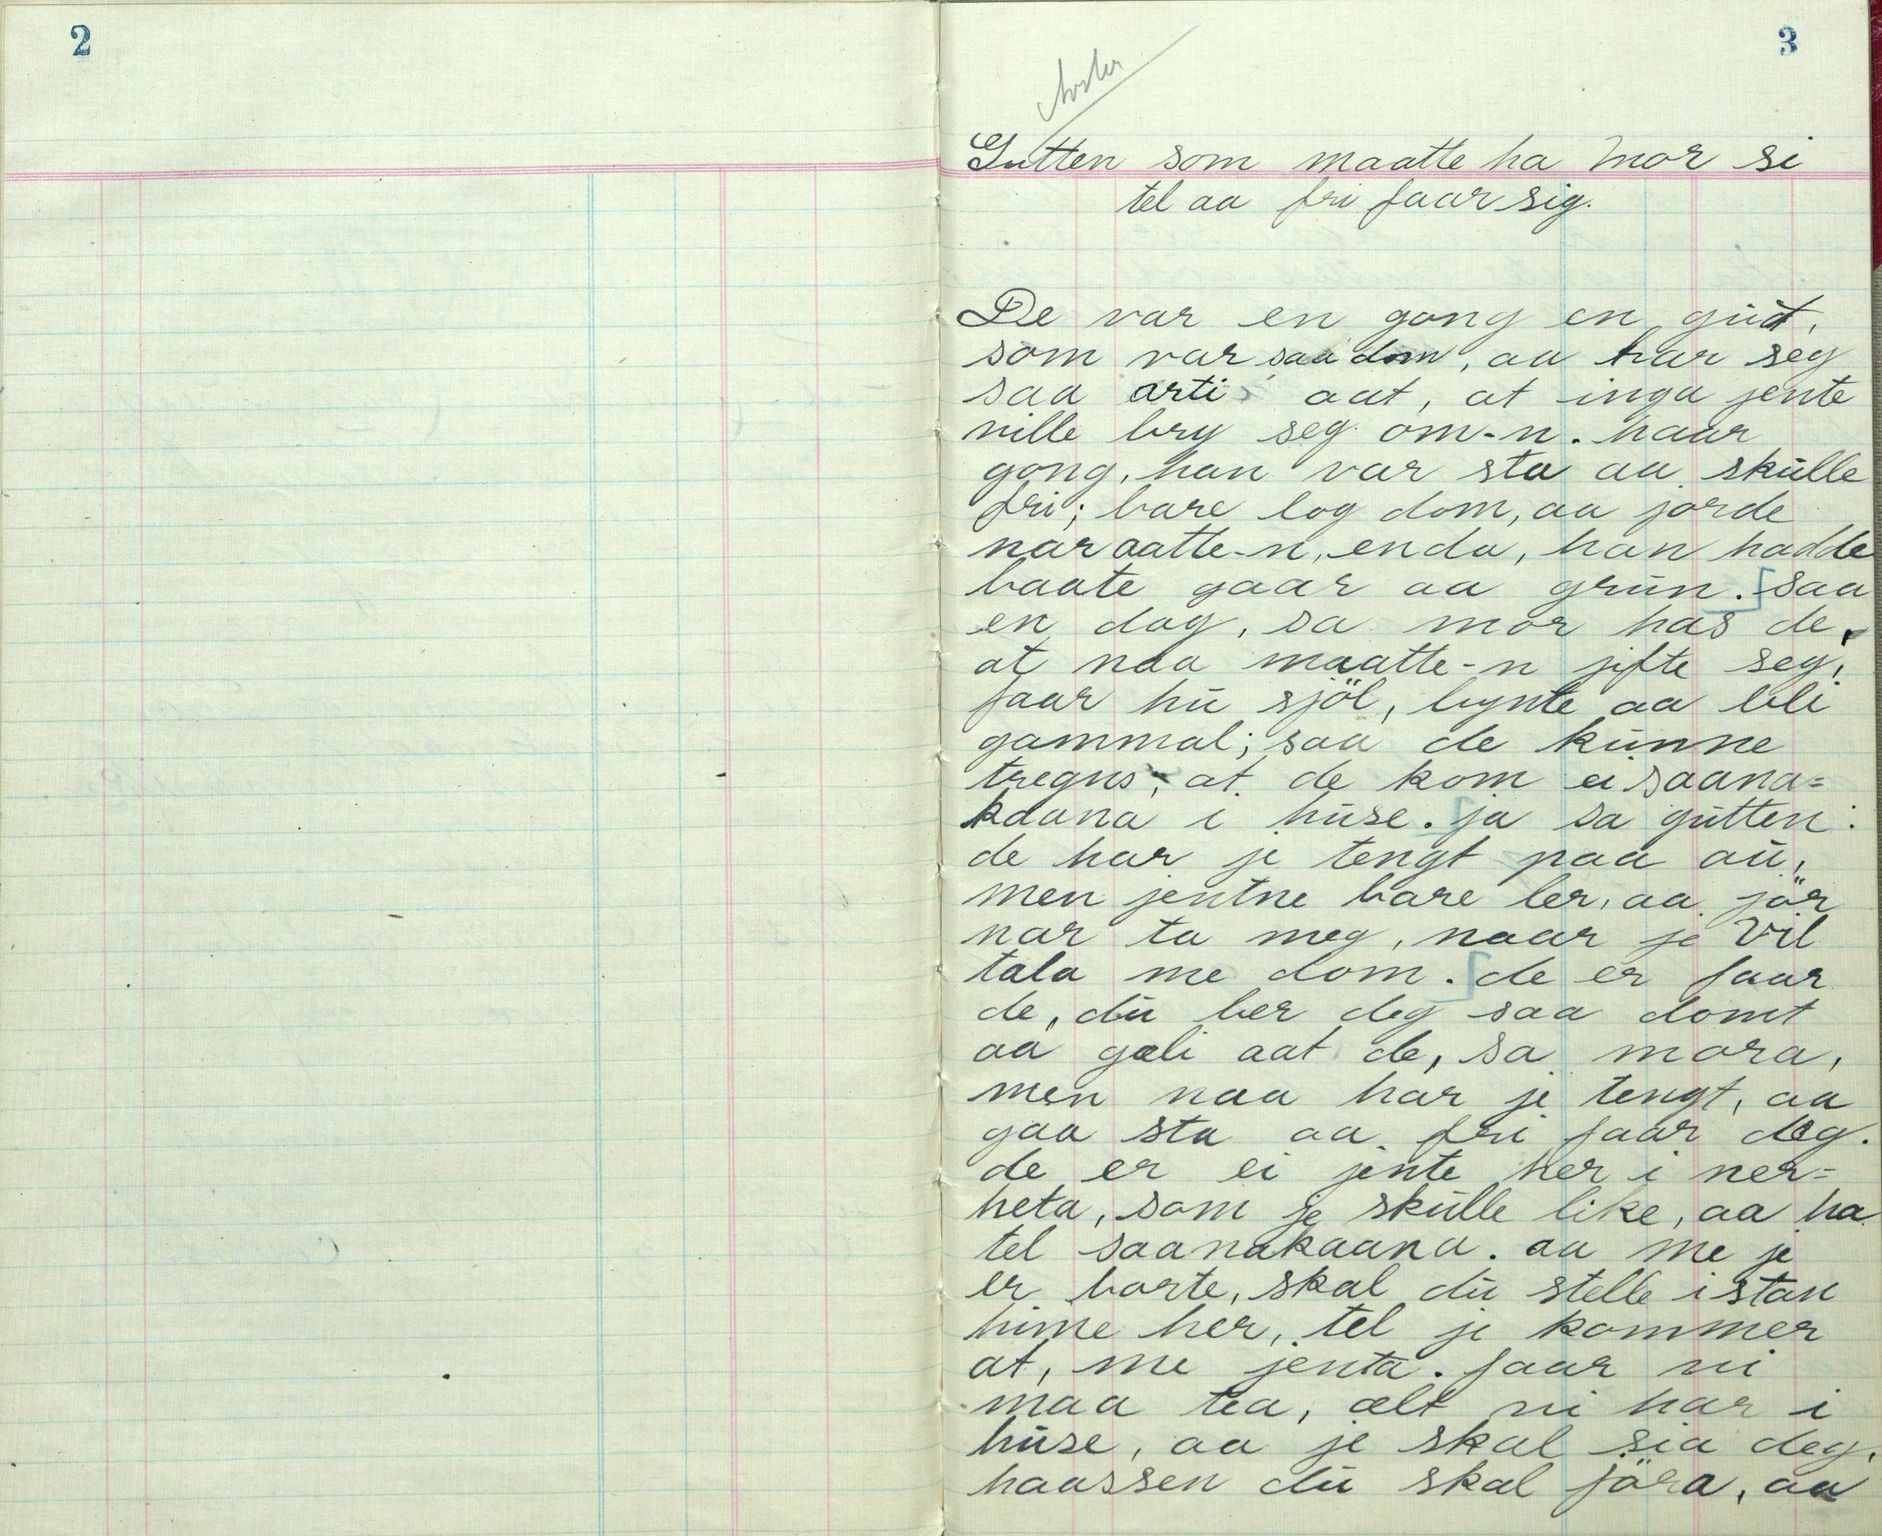 2
3
Gutten som maatte ha mor si
tel aa fri faar sig.
De var en gong en gut,
som var saa dom, aa bar seg
saa arti aat, at inga jente
ville bry seg om-n. naar
gong, han var sta aa skulle
fri; bare log dom, aa jorde
nar aatte-n, enda, han hadde
baate gaar aa grun. saa
en dag, sa mor has de,
at naa maatte-n jifte seg,
faar hu sjöl, bynte aa bli
gammal; saa de kunne
tregns, at de kom ei saana=
kaana i huse. ja sa gutten:
de har je tengt paa au,
men jentne bare ler, aa jör
nar ta meg, naar je vil
tala me dom. de er faar
de, du ber deg saa domt
aa gali aat de, sa mora,
men naa har je tengt, aa
gaa sta aa fri faar deg.
de er ei jente her i ner=
heta, som je skulle like, aa ha
tel saanakaana. aa me je
er borte, skal du stelle istan
hime her, tel je kommer
at, me jenta. faar vi
maa tea, alt vi har i
huse, aa je skal sia deg,
haassen du skal jöra, aa